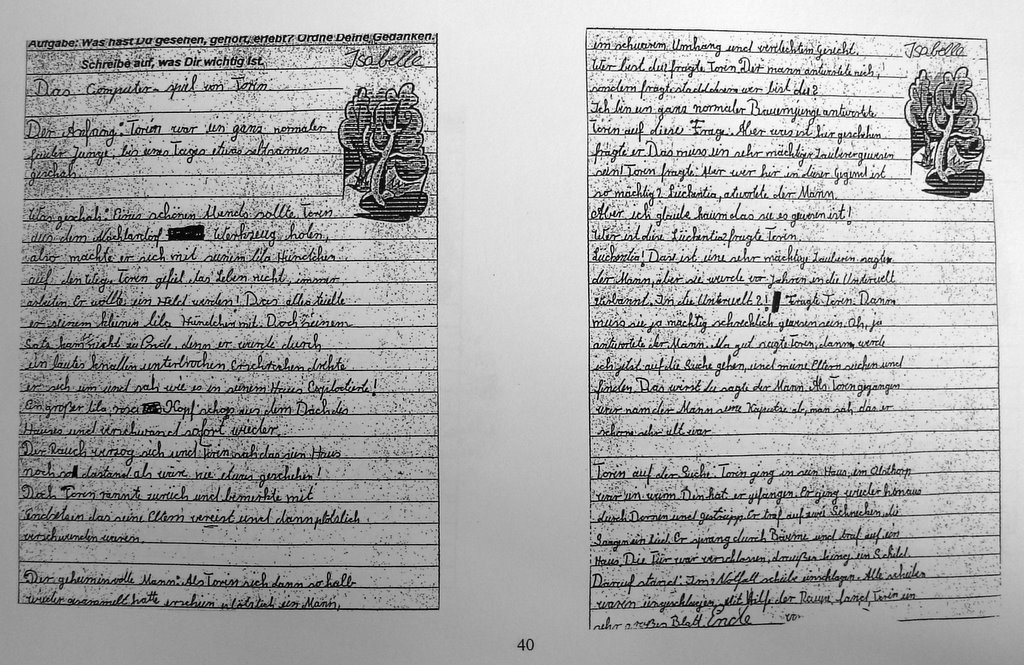 Aufgabe: Was hast Du gesehen, gehört, erlebt? Ordne Deine Gedanken.
Schreibe auf, was Dir wichtig ist.
Isabella
Das Computer-spiel von Torin
Der Anfang: Torin war ein ganz normaler
Junge, bis eines Tages etwas seltsames
geschah.
Was geschah: Eines schönen Abends sollte Torin
aus dem Werkzeug holen,
also machte er sich mit seinem lila Hündchen
auf den Weg. Torin gefiel das Leben nicht, immer
arbeiten. Er wollte ein Held werden! Das alles teilte
er seinem kleinen lila Hündchen mit. Doch seinem
Satz kam nicht zu Ende, denn er wurde durch
ein lautes knallen unterbrochen. Erschrocken drehte
er sich um und sah wie es in seinem Haus Explodierte!
Ein großer lila, rosa Kopf schoss aus dem Dach des
Hauses und verschwand sofort wieder.
Der Rauch verzog sich und Torin sah das sein Haus
noch so dastand als wäre nie etwas geschehen!
Doch Torin rannte zurück und bemerkte mit
das seine Eltern vereist und dann plötzlich
verschwunden waren.
Der geheimnisvolle Mann: Als Torin sich dann so halb
wieder gesammelt hatte erschien plötzlich ein Mann,
im schwarzem Umhang und verdecktem Gesicht.
Isabella
Wer bist du? fragte Torin. Der mann antwortete nich,
sondern fragte stattdessen wer bist du?
Ich bin ein ganz normaler Bauernjunge antwortete
Torin auf diese Frage. Aber was ist hier geschehen
fragte er. Das muss ein sehr mächtiger Zauberer gewesen
sein! Torin fragte: Aber wer hier in dieser Gegend ist
so mächtig? Lüchentia, atwortete der Mann.
Aber ich glaube kaum das sie es gewesen ist!
Wer ist diese Lüchentia? fragte Torin.
Lüchentia! Das ist eine sehr mächtige Zauberin sagte
der Mann, aber sie wurde vor Jahren in die Unterwelt
verbannt. In die Unterwelt?! Fragte Torin. Dann
muss sie ja mächtig schrecklich gewesen sein. Oh, ja
antwortete der Mann. Na gut sagte Torin, dann werde
ich jetzt auf die Suche gehen, und meine Eltern suchen und
finden. Das wirst du sagte der Mann. Als Torin gegangen
war nam der Mann seine Kaputze ab, man sah, das er
schon sehr alt war.
Torin auf der Suche: Torin ging in sein Haus, im
war ein wurm. Den hat er gefangen. Er ging wieder hinaus
durch Dornen und gestrüpp. Er traf auf zwei Schnecken, die
ein Lied. Er sprang durch Bäume und traf auf ein
Haus. Die Tür war verschlossen, draußen hing ein Schild.
Darauf stand: Im Notfall scheibe einschlagen. Alle scheiben
waren eingeschlagen. Mit hilfe der fand Torin ein
sehr großes Blatt Ende
40